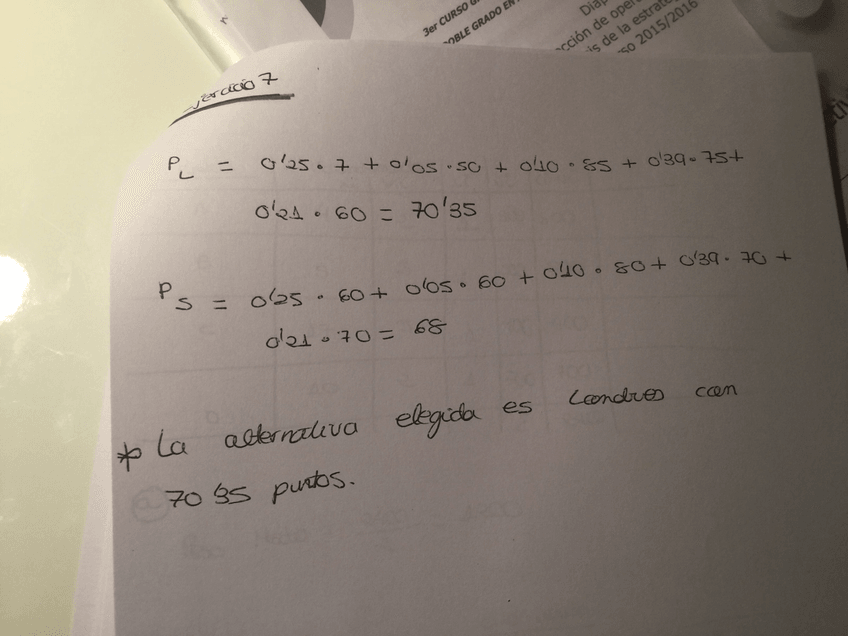 3er CURSO
DOBLE GRADO EN
cción de oper
is de la estrate
so 2015/2016
ejercicio 7
P_L = 0'25 · 7 + 0'05 · 50 + 0'10 · 85 + 0'39 · 75 +
0'21 · 60 = 70'35
P_S = 0'25 · 60 + 0'05 · 60 + 0'10 · 80 + 0'39 · 70 +
0'21 · 70 = 68
* La alternativa elegida es Londres con
70'35 puntos.